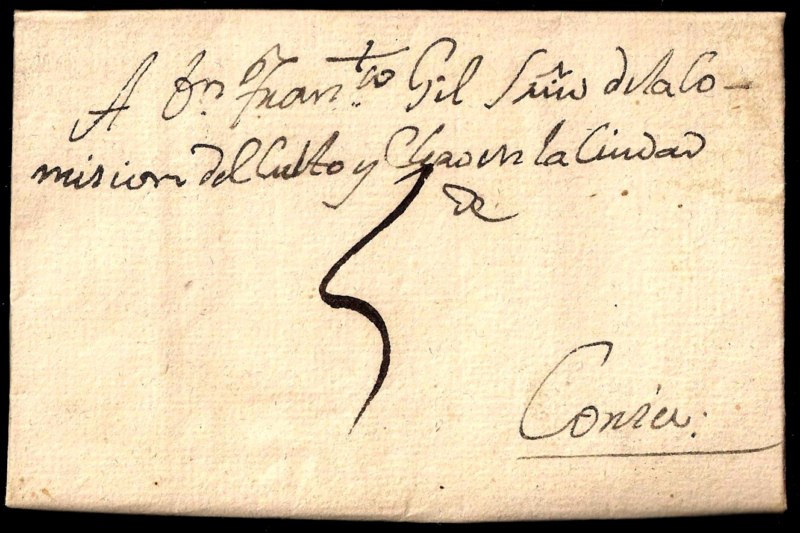 A Dn. Franco. Gil Srio de la Co-
mision del Culto y Clero en la Ciudad
de
5
Coria.